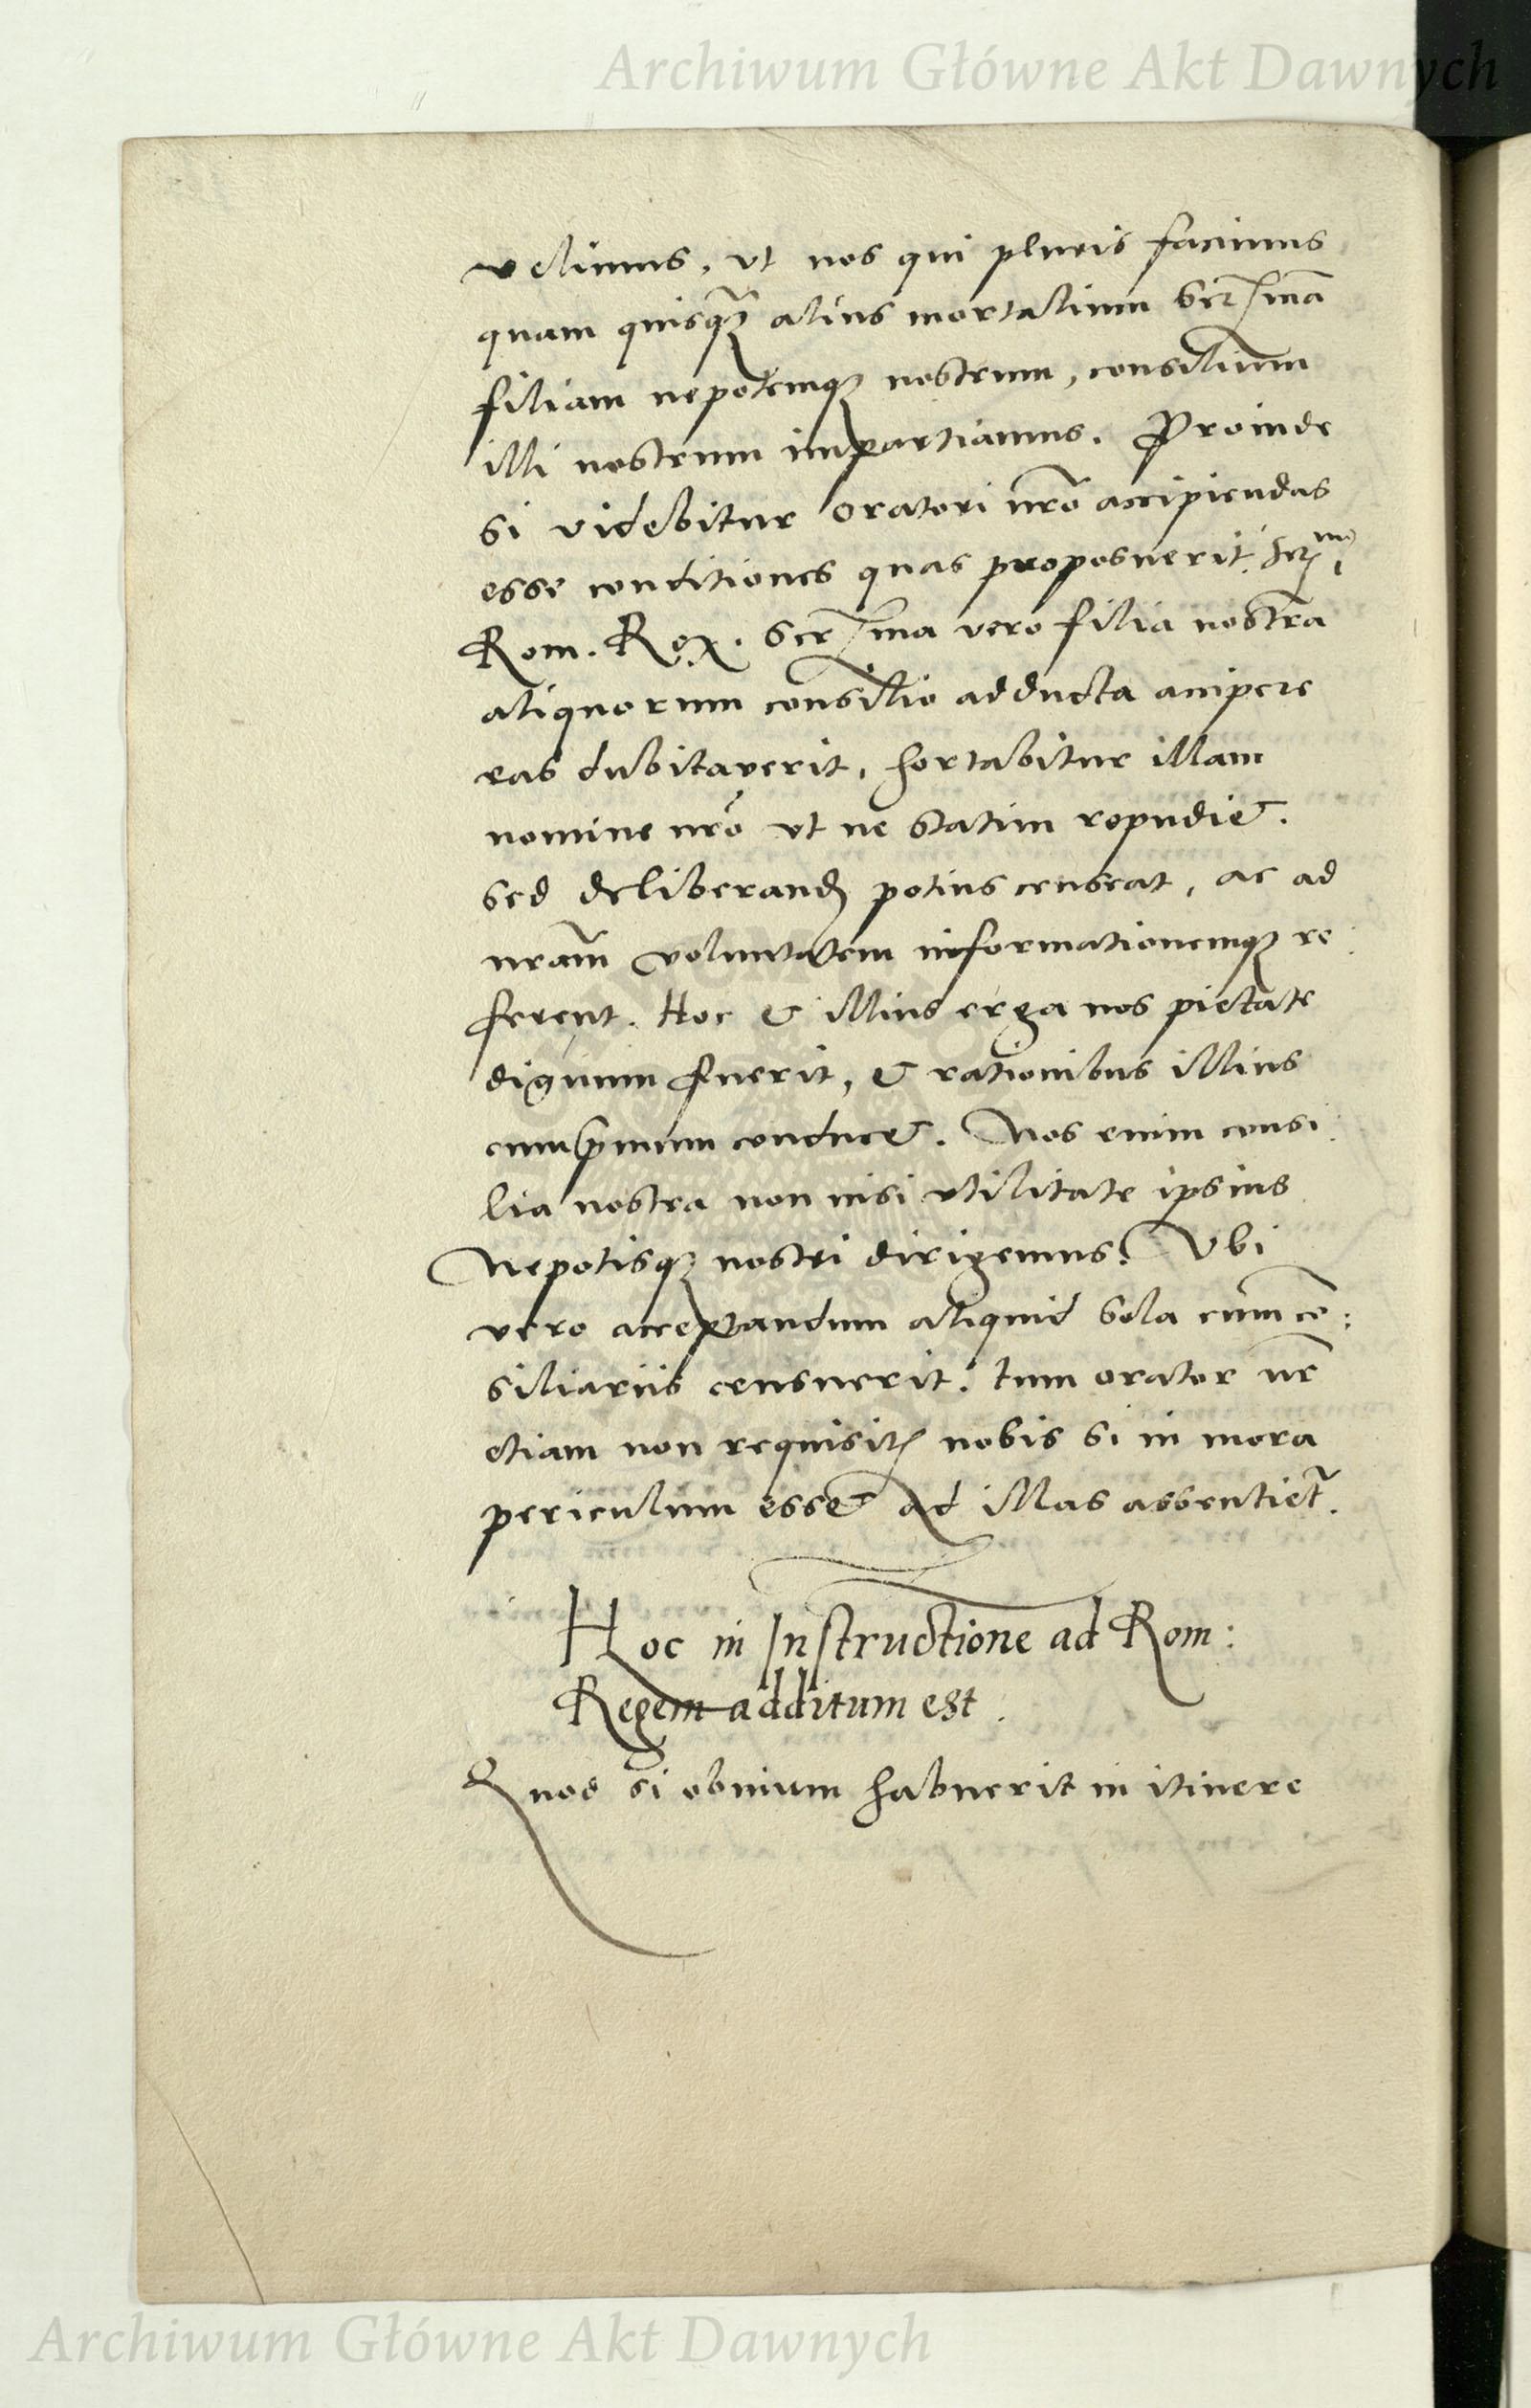 Archiwum Główne Akt Dawnych
velimus, ut nos qui pluris facimus
quam quisq̃ȝ alius mortalium Serᵐmã
filiam nepotemqȝ nostrum, consilium
illi nostrum impartiamus. Proinde
si videbitur oratori nr̃o accipiendas
esse conditiones quas proposuerit Serᵐᵘˢ
Rom. Rex. Serᵐma vero filia nostra
aliquorum consilio adducta accipere
eas dubitaverit, hortabitur illam
nomine nr̃o ut ne statim repudiet.
sed deliberandũ potius censeat, ac ad
nrãm voluntatem informationemqȝ re
ferent. Hoc & illius erga nos pietate
dignum fuerit, & rationibus illius
cumprimum conducet. Nos enim consi
lia nostra non nisi utilitate ipsius
Nepotisqȝ nostri dirigemus. Ubi
vero acceptandum aliquid sola cum cõ:
siliariis censuerit: tum orator nr̃
etiam non requisitis nobis si in mora
periculum esset ad illas assentietr̃.
Hoc in Instructione ad Rom:
Regem additum est.
Quod si obvium habuerit in itinere
Archiwum Główne Akt Dawnych